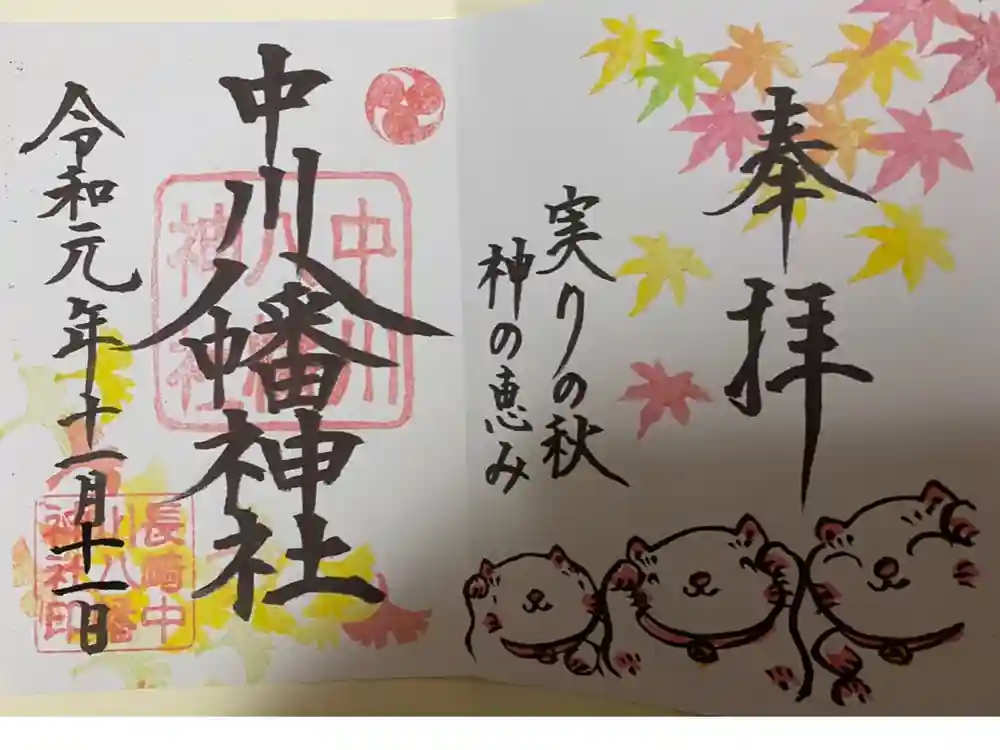 奉拝
実りの秋
神の恵み
中川八幡神社
中川
八幡
神社
令和元年十一月十一日
長崎中
川八幡
神社印